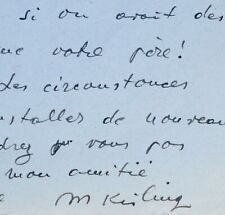 si on avait des
votre père!
les circonstances
nstaller de nouveau
drez vous pas
mon amitié
M Kisling